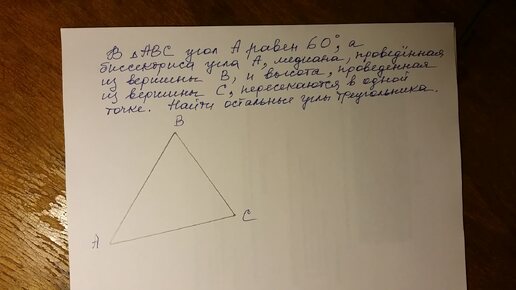 В △ABC угол А равен 60°, а
биссектриса угла А, медиана, проведённая
из вершины В, и высота, проведенная
из вершины С, пересекаются в одной
точке. Найти остальные углы треугольника.
В
С
А